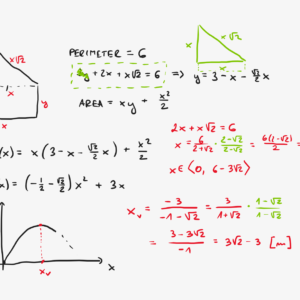 x√2
x
y
x
x√2
x
PERIMETER = 6
2y + 2x + x√2 = 6 ⇒ y = 3 - x - √2/2 x
AREA = xy + x²/2
2x + x√2 = 6
x = 6/(2+√2) · (2-√2)/(2-√2) = 6(2-√2)/2 =
x ∈ ⟨0, 6-3√2⟩
(x) = x(3 - x - √2/2 x) + x²/2
x) = (-1/2 - √2/2) x² + 3x
x_v = -3/(-1-√2) = 3/(1+√2) · (1-√2)/(1-√2)
= (3-3√2)/(-1) = 3√2 - 3 [m]
x_v
x